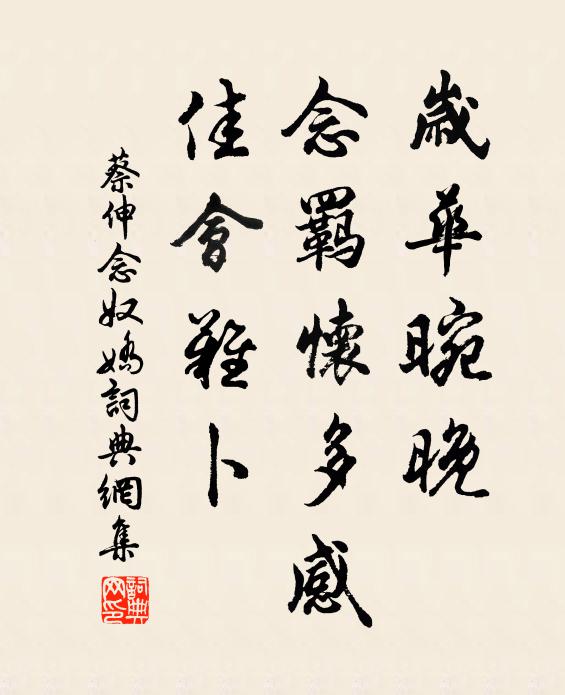 歲華晼晚
念羈懷多感
佳會難卜
蔡伸念奴嬌詞典網集
詞典網印